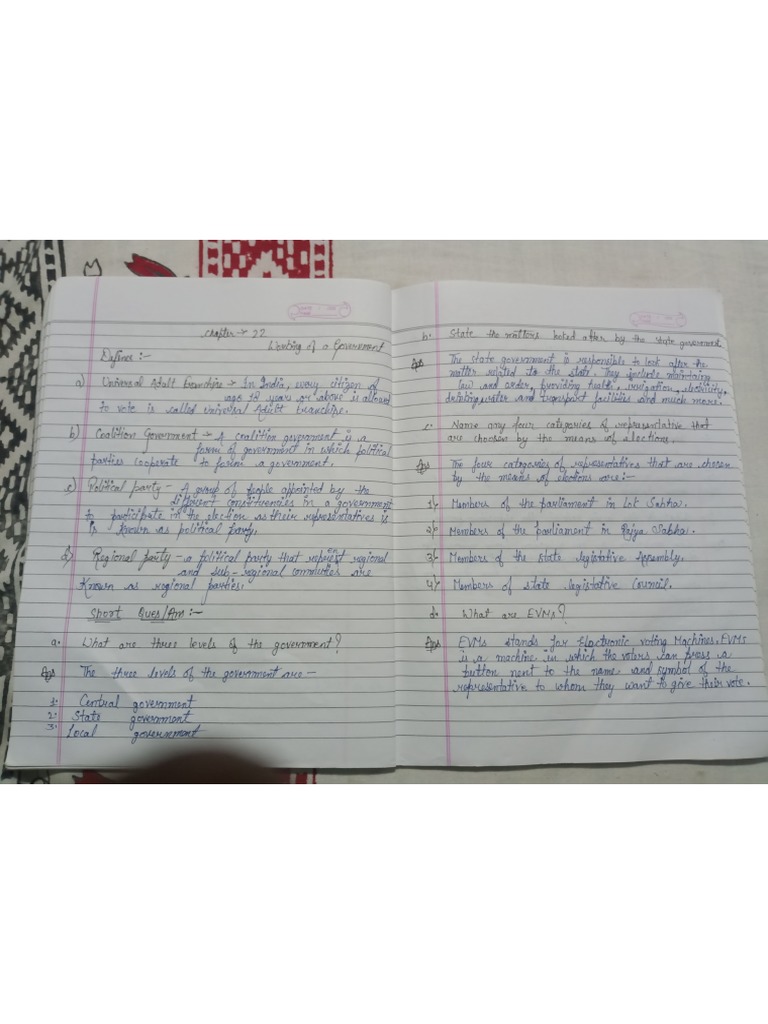 Chapter → 22
Working of a Government
Defines :-
a) Universal Adult Franchise → In India, every citizen of
age 18 years or above is allowed
to vote is called Universal Adult Franchise.
b) Coalition Government → A coalition government is a
form of government in which political
parties cooperate to form a government.
c) Political party - A group of people appointed by the
different constituencies in a government
to participate in the election as their representatives is
is known as political party.
d) Regional party - a political party that represent regional
and sub-regional commuties are
Known as regional parties.
Short Ques/Ans :-
a. What are three levels of the government?
Ans The three levels of the government are -
1. Central government
2. State government
3. Local government
b. State the matters looked after by the state government
Ans The state government is responsible to look after the
matter related to the state. They include maintaining
law and order, providing health, irrigation, electricity,
drinking water and transport facilities and much more.
c. Name any four categories of representative that
are choosen by the means of elections.
Ans The four catrogories of representatives that are chosen
by the means of elections are :-
1) Members of the parliament in Lok Sabha.
2) Members of the Parliament in Rajya Sabha.
3) Members of the state legislative Assembly.
4) Members of state legislative Council.
d. What are EVMs?
Ans EVMs stands for Electronic Voting Machines. EVMs
is a machine in which the voters can press a
button next to the name and symbol of the
representative to whom they want to give their vote.